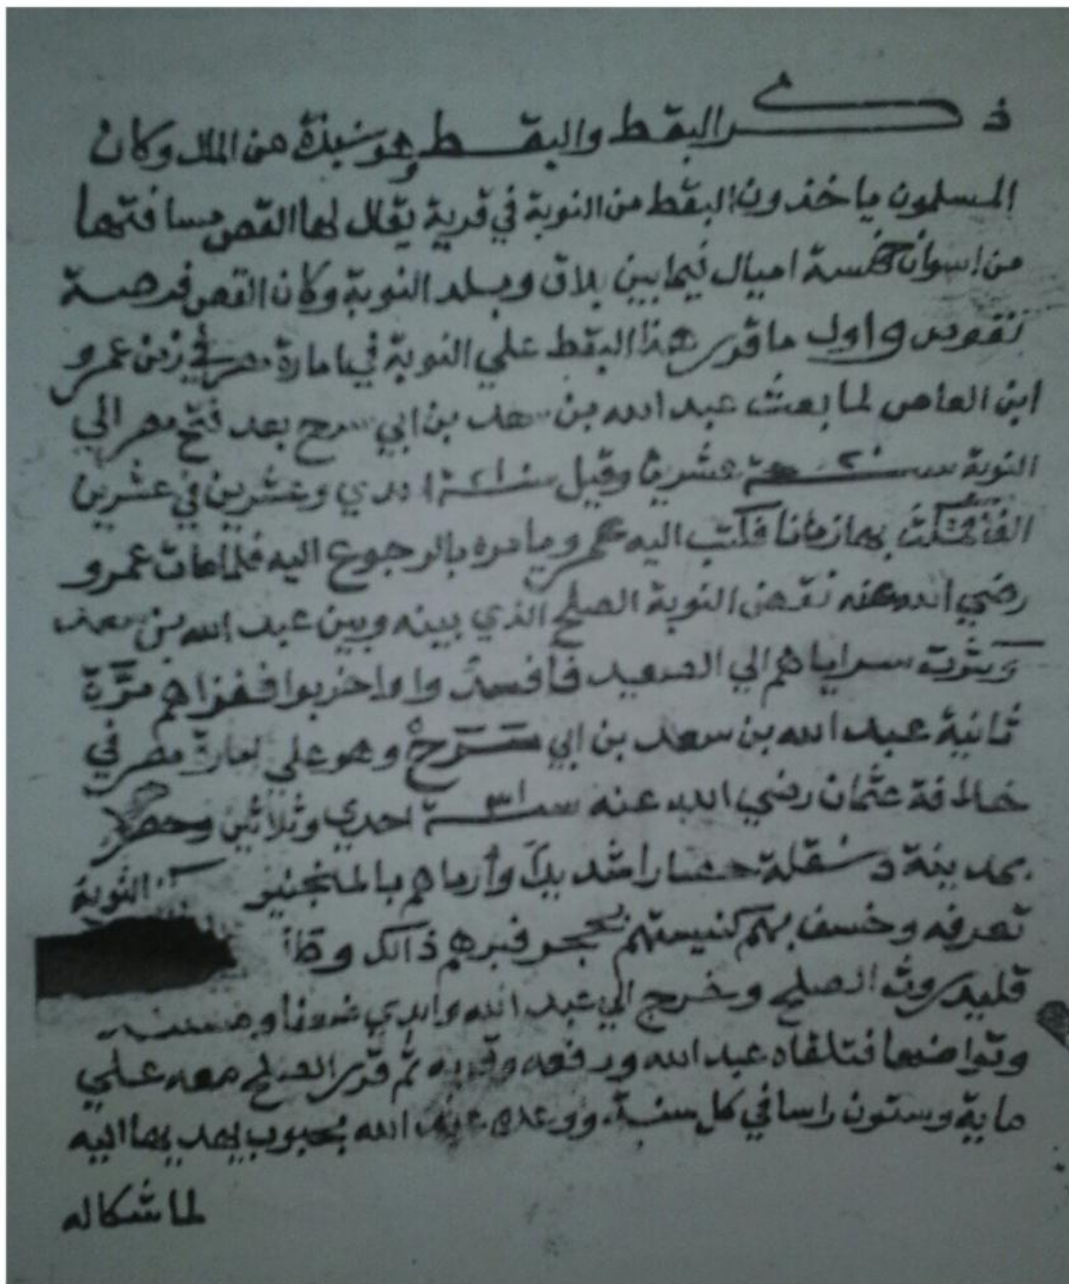 ذكر البقط والبقط وهو نبذة من المال وكان
المسلمون ياخذون البقط من النوبة في قرية يقال لها القصر مسافتها
من اسوان خمسة اميال فيما بين بلاق وبلد النوبة وكان القصر فرصة
لقوص واول ما قرر هذا البقط علي النوبة في امارة عمرو
ابن العاص لما بعث عبد الله بن سعد بن ابي سرح بعد فتح مصر الي
النوبة سنة ٢٠ عشرين وقيل سنة ٢١ احدي وعشرين في عشرين
الفا فمكث بها زمانا فكتب اليه عمرو يامره بالرجوع اليه فلما مات عمرو
رضي الله عنه نقض النوبة الصلح الذي بينه وبين عبد الله بن سعد
وكثرت سراياهم الي الصعيد فافسدوا واخربوا فغزاهم مرّة
ثانية عبد الله بن سعد بن ابي سرح وهو علي امارة مصر في
خلافة عثمان رضي الله عنه سنة ٣١ احدي وثلاثين وحصر
بمدينة دنقلة حصارا شديدا وأرماهم بالمنجنيق النوبة
تعرفه وخسف بهم كنيستهم بحجر فبهرهم ذالك
قليدروث الصلح وخرج الي عبد الله وابدي ضعفا ومسكنة
وتواضعا فتلقاه عبد الله ورفعه وقربه ثم قرر الصلح معه علي
ماية وستون راسا في كل سنة ووعده عبد الله بحبوب يهديها اليه
لما شكا له